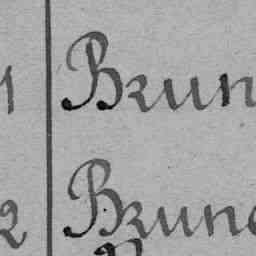 1 Brun
2 Brun